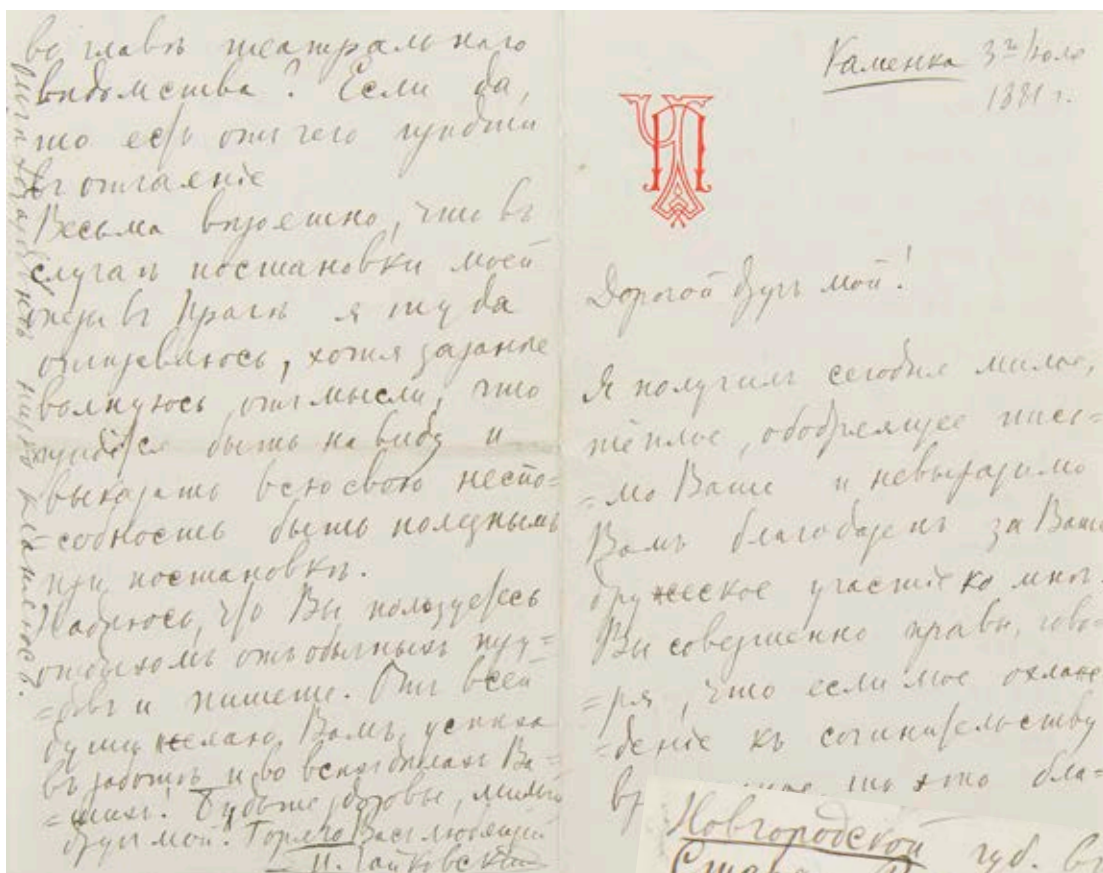 во главѣ театральнаго
вѣдомства? Если да,
то есть отъ чего придти
въ отчаяніе
Весьма вѣроятно, что въ
случаѣ постановки моей
оперы въ Прагѣ я туда
отправлюсь, хотя заранѣе
волнуюсь отъ мысли, что
придется быть на виду и
выказать всю свою неспо=
=собность быть полезнымъ
при постановкѣ.
Надѣюсь, что Вы пользуетесь
отдыхомъ отъ обычныхъ тру=
=довъ и пишете. Отъ всей
души желаю Вамъ успѣха
въ работѣ и во всѣхъ дѣлахъ Ва=
=шихъ! Будьте здоровы, милый
другъ мой. Горячо Васъ любящій
П. Чайковскій
низко кланяюсь.
Каменка 3го
1881 г.
ЧП
Дорогой другъ мой!
Я получилъ сегодня милое,
тёплое, ободряющее пись=
=мо Ваше и невыразимо
Вамъ благодаренъ за Ваше
дружеское участіе ко мнѣ.
Вы совершенно правы, гово=
=ря, что если мое охлаж
=деніе къ сочинительству
то это бла=
Новгородской губ. въ